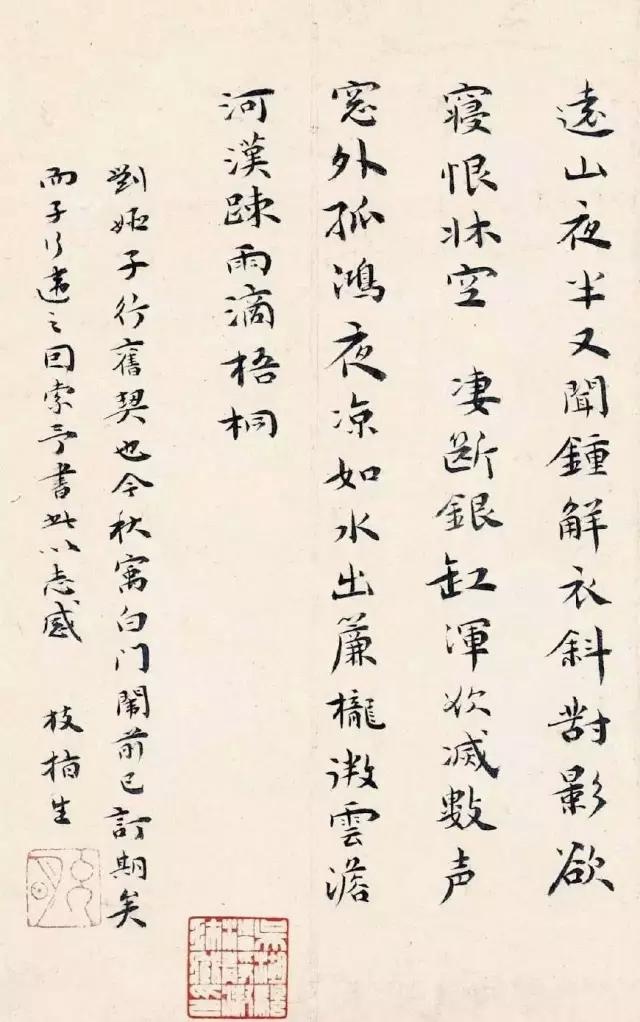 遠山夜半又聞鍾解衣斜對影欲
寢恨牀空 凄斷銀缸渾欲滅數声
窓外孤鴻夜凉如水出簾櫳微雲澹
河漢踈雨滴梧桐
劉姬子行舊契也今秋寓白门闈前已訂期矣
而子行違之回索予書此以志感 枝栢生